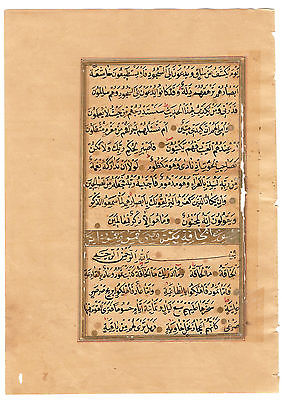 يوم يكشف عن ساق ويدعون الى السجود فلا يستطيعون خاشعة
ابصارهم ترهقهم ذلة وقد كانوا يدعون الى السجود وهم سالمون
فذرني ومن يكذب بهذا الحديث سنستدرجهم من حيث لا يعلمون
واملي لهم ان كيدي متين ام تسئلهم اجرا فهم من مغرم مثقلون
ام عندهم الغيب فهم يكتبون فاصبر لحكم ربك ولا تكن
كصاحب الحوت اذ نادى وهو مكظوم لولا ان تداركه نعمة
من ربه لنبذ بالعراء وهو مذموم فاجتباه ربه فجعله من الصالحين
وان يكاد الذين كفروا ليزلقونك بابصارهم لما سمعوا الذكر
ويقولون انه لمجنون وما هو الا ذكر للعالمين
سورة الحاقة مكية
بسم الله الرحمن الرحيم
الحاقة ما الحاقة وما ادريك ما الحاقة كذبت ثمود وعاد بالقارعة
فاما ثمود فاهلكوا بالطاغية واما عاد فاهلكوا بريح صرصر
عاتية سخرها عليهم سبع ليال وثمانية ايام حسوما فترى القوم فيها
صرعى كانهم اعجاز نخل خاوية فهل ترى لهم من باقية